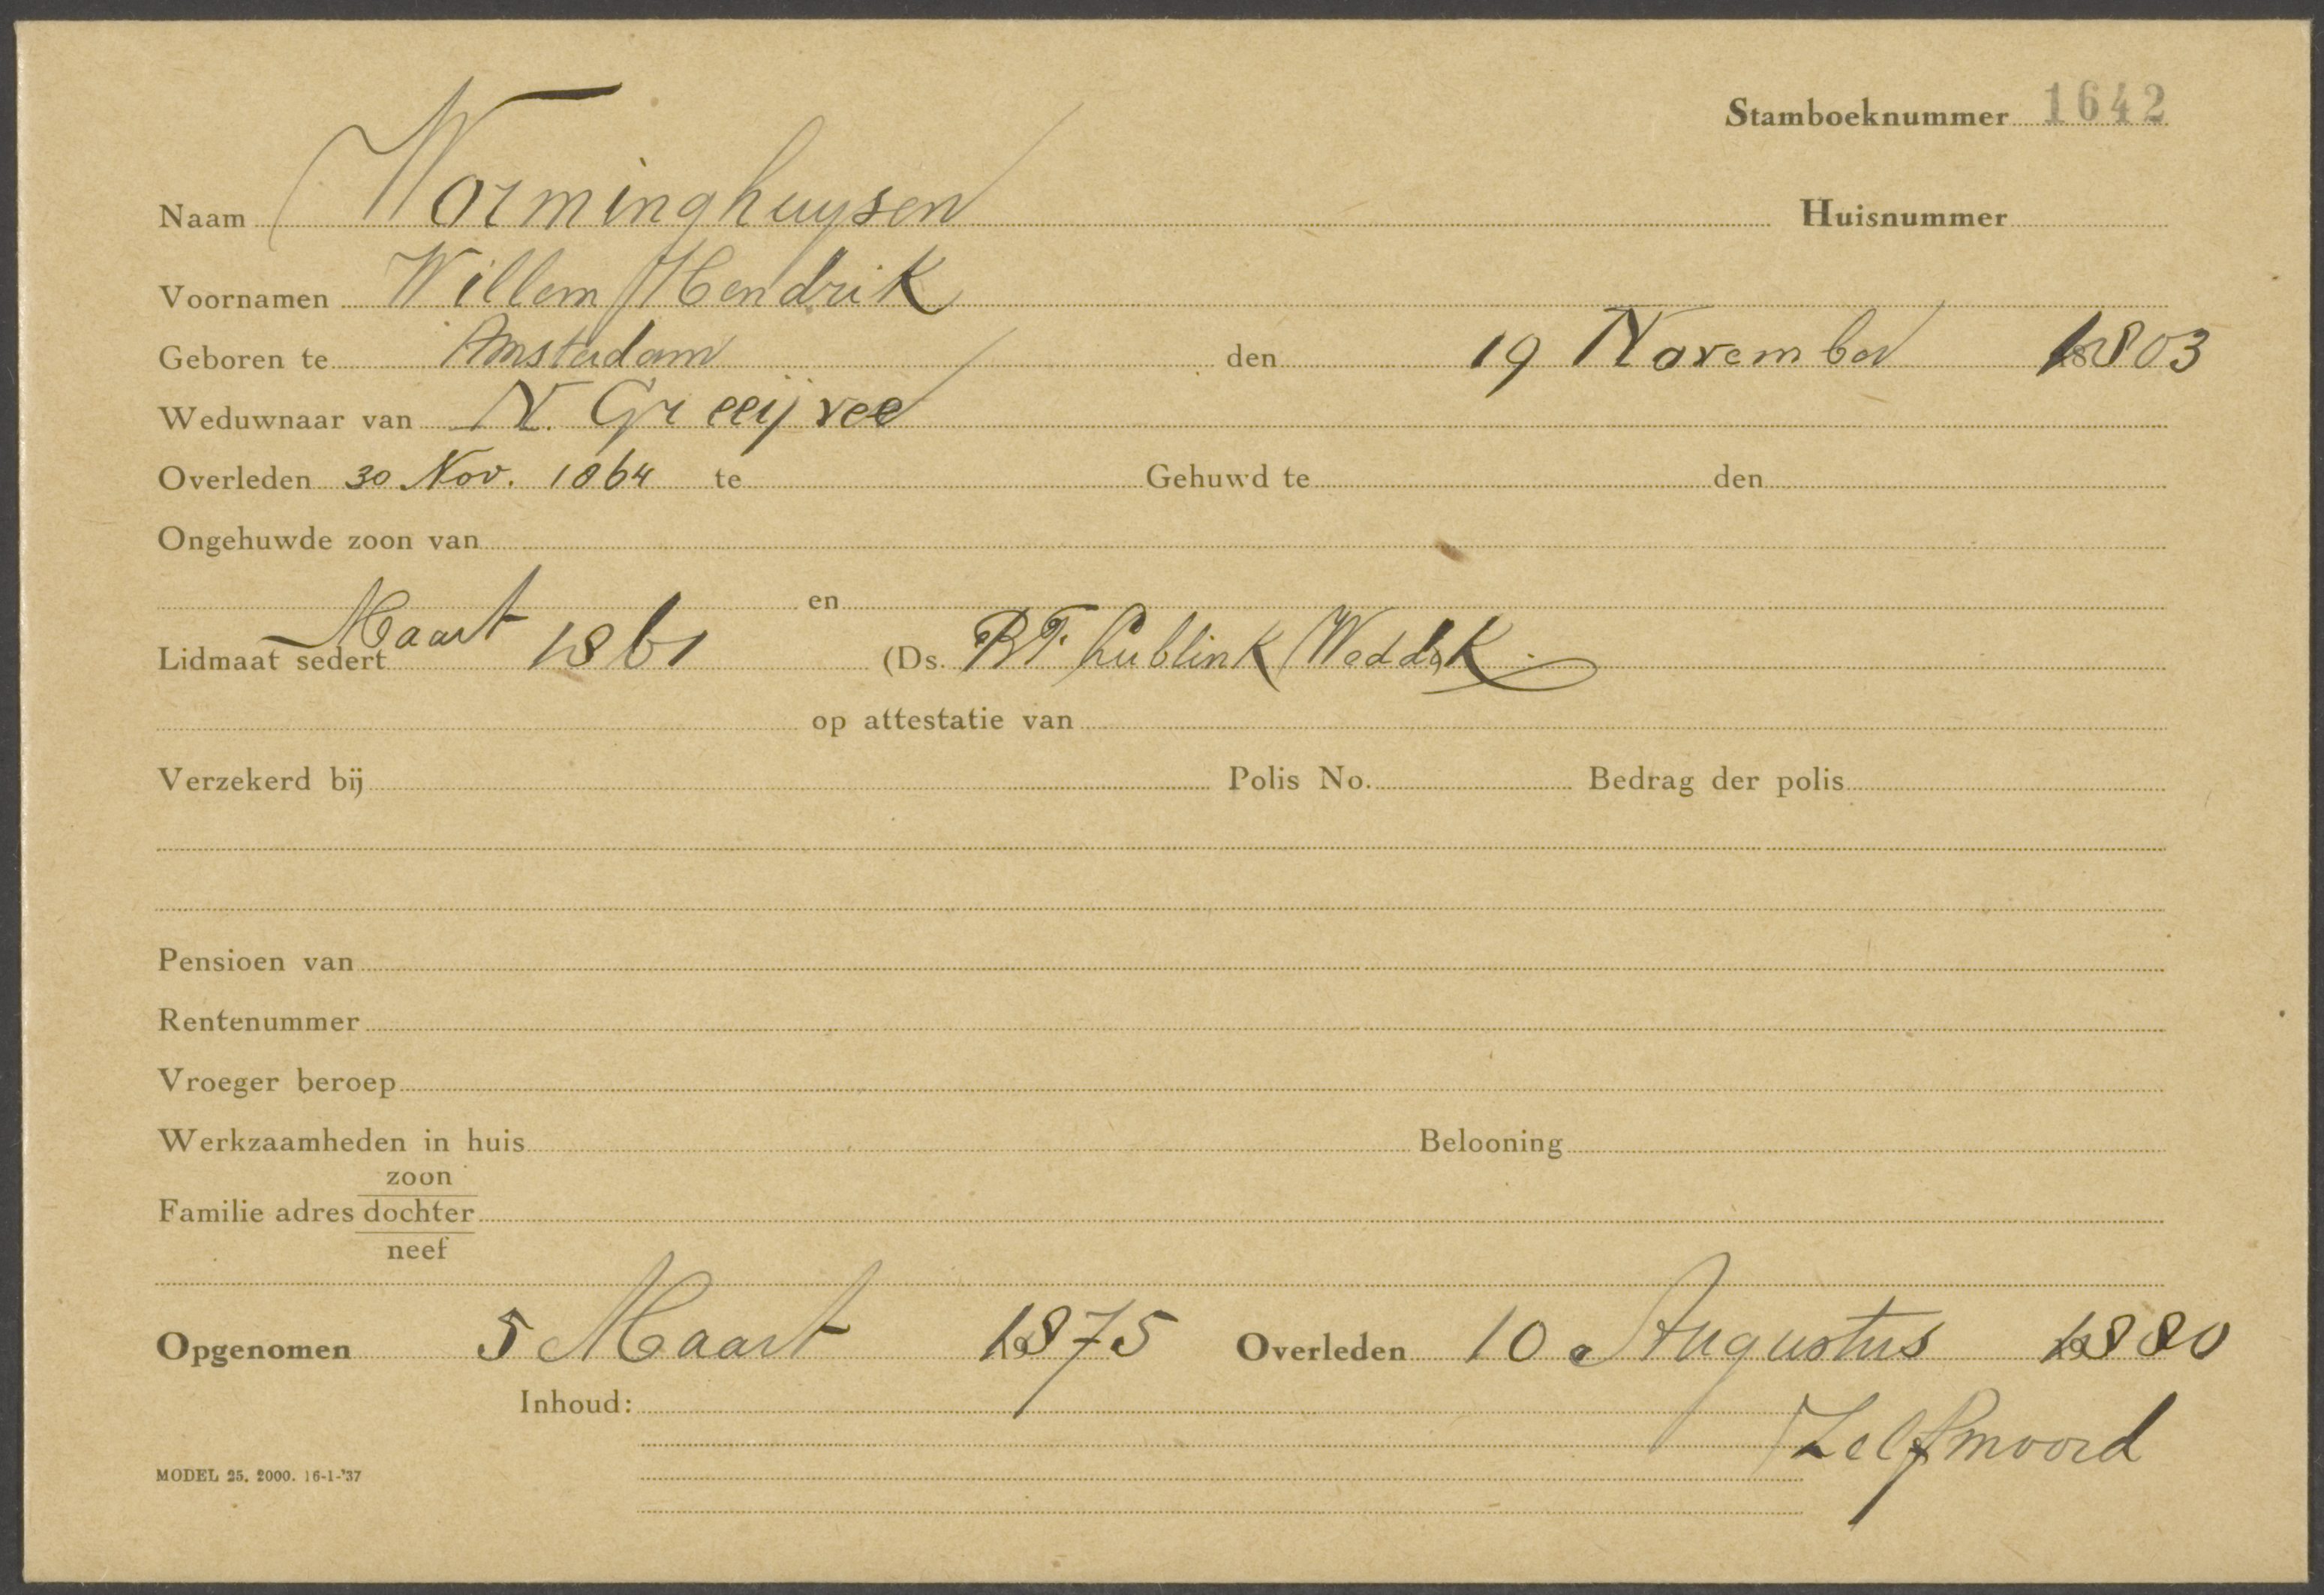 Stamboeknummer 1642
Naam Worminghuysen Huisnummer
Voornamen Willem Hendrik
Geboren te Amsterdam den 19 November 1803
Weduwnaar van N. Greeijvee
Overleden 30 Nov. 1864 te Gehuwd te den
Ongehuwde zoon van
en
Lidmaat sedert Maart 1861 (Ds. B.T. Lublink Weddik
op attestatie van
Verzekerd bij Polis No. Bedrag der polis
Pensioen van
Rentenummer
Vroeger beroep
Werkzaamheden in huis Belooning
zoon
Familie adres dochter
neef
Opgenomen 5 Maart 1875 Overleden 10 Augustus 1880
Inhoud:
Zelfmoord
MODEL 25. 2000. 16-1-'37